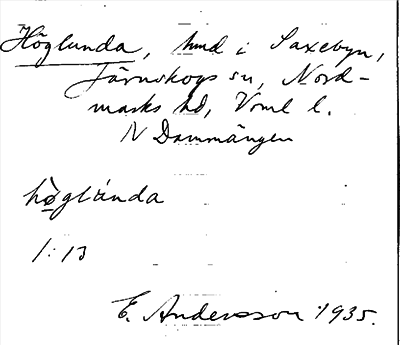 Höglunda, hmd i Saxebyn,
Järnskogs sn, Nord-
marks hd, Vrml l.
N Dammängen
hö̀glúnda
1:13
E. Andersson 1935.